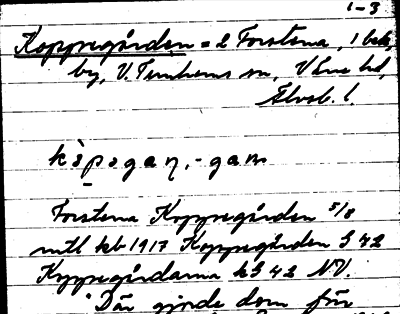 1-3
Koppregården = 2 Forstena, 1 bek,
by, V. Tunhems sn, Väne hd,
Älvsb. l.
kɛ̀pəgaɳ, -gaɳ
Forstena Koppregården 5/8
mtl kb 1917 Koppregården S 42
Koppregårdarna hS 42 NV.
"Där gjorde dom för